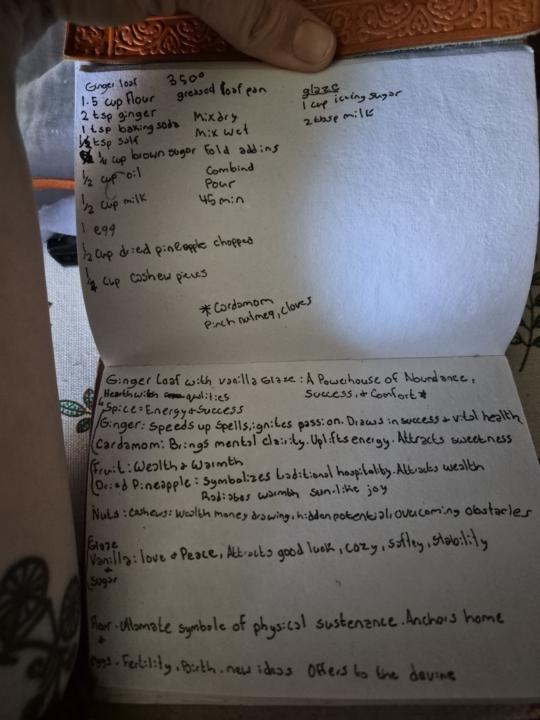 Ginger loaf 350°
greased loaf pan
1.5 cup flour
2 tsp ginger
1 tsp baking soda
½ tsp salt
¼ cup brown sugar
½ cup oil
½ cup milk
1 egg
½ cup dried pineapple chopped
¼ cup cashew pieces
Mix dry
Mix wet
Fold add ins
Combind
Pour
45 min
* Cardamom
Pinch nutmeg, cloves
glaze
1 cup icing sugar
2 tbsp milk
Ginger Loaf with Vanilla Glaze : A Powerhouse of Abundance,
Success, & Comfort *
Hearthwitch qualities
Spice = Energy & Success
Ginger: Speeds up Spells, ignites passion. Draws in success & vital health
Cardamom: Brings mental clairity. Uplifts energy. Attracts sweetness
Fruit: Wealth & Warmth
Dried Pineapple: Symbolizes traditional hospitality. Attracts wealth
Radiates warmth sunlike joy
Nuts: Cashews: Wealth money drawing, hidden potential, overcoming obstacles
Glaze
Vanilla: love & Peace, Attracts good luck, cozy, saftey, stability
+
Sugar
Flour - Ultamate symbole of physical sustenance. Anchors home
+
Eggs - Fertility, Birth, new ideas Offers to the devine